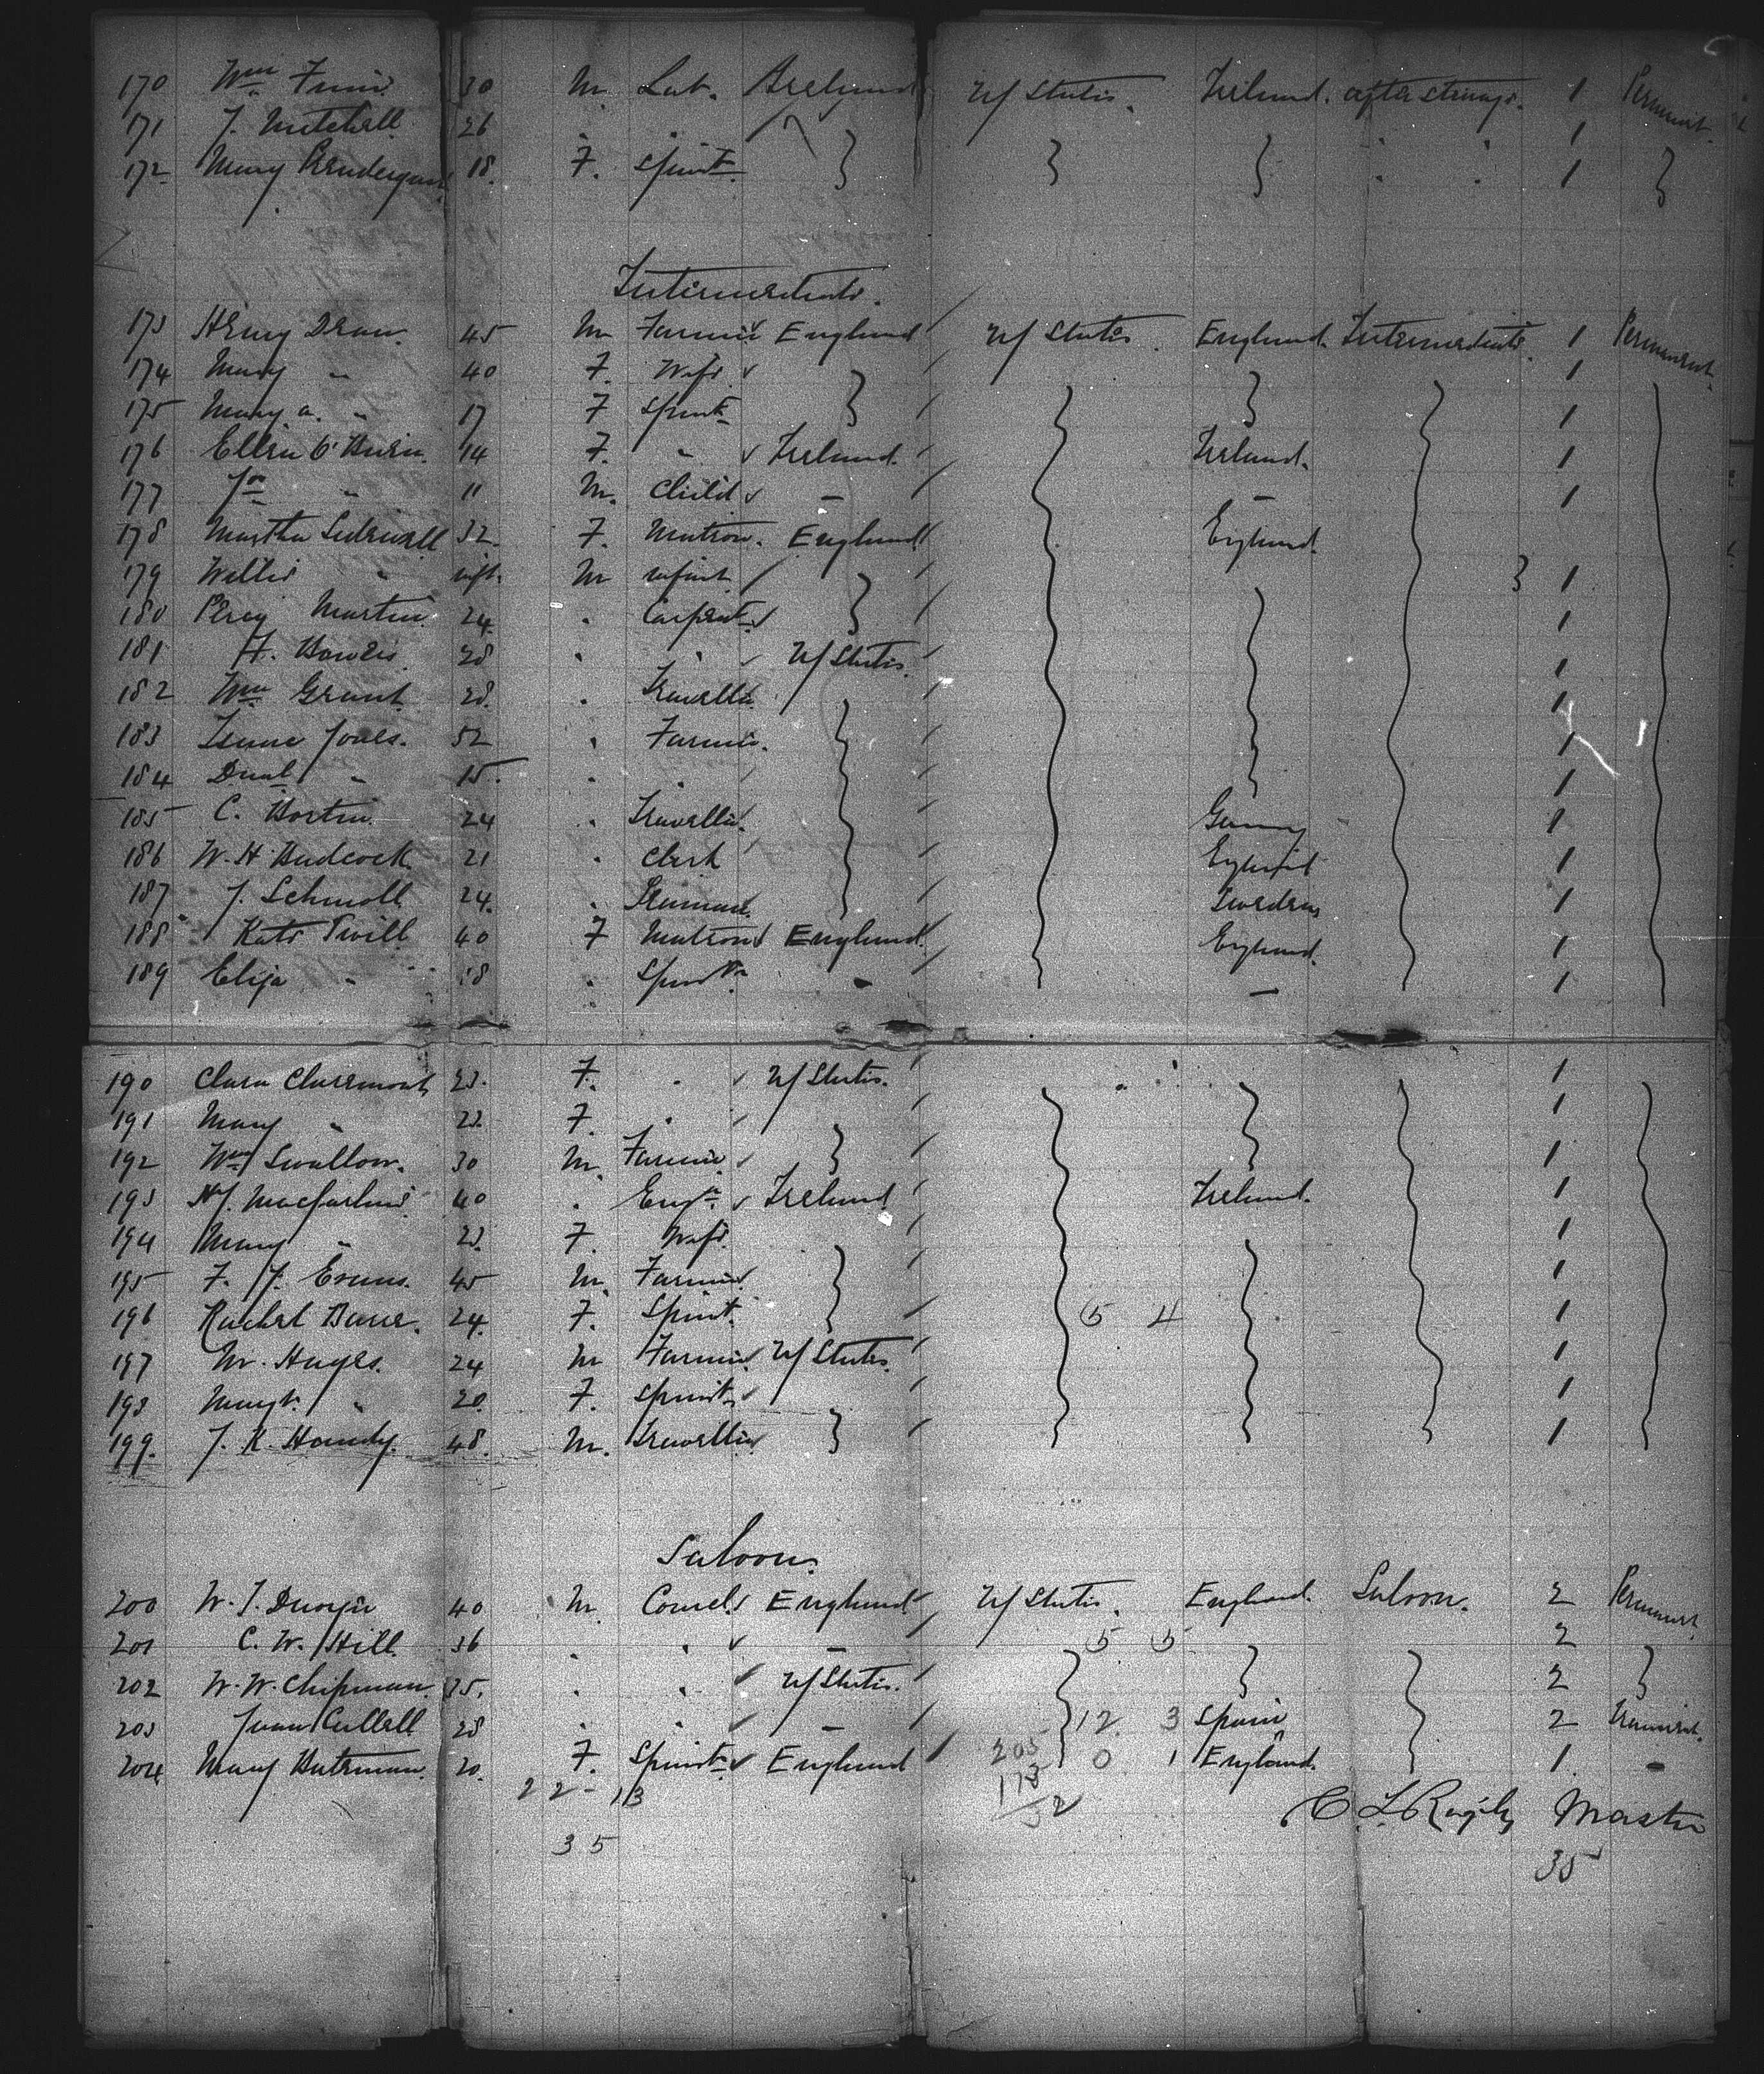 170 Wm 30 M Lab. Ireland U/States. Ireland. after steerage. 1 Permanent
171 J. Mitchell 26 " " 1
172 Mary Prendergast 18. F. Spinst. " " 1
Intermediate.
173 Henry 45 M Farmer England U/States. England. Intermediate. 1 Permanent.
174 Mary " 40 F. Wife 1
175 Mary A. " 17 F Spinst 1
176 Ellen O'Brien. 14 F. " Ireland. Ireland. 1
177 Jno " 11 M. Child - - 1
178 Martha 32 F. Matron. England England. 1
179 Willie " inft. M infant 1
180 Percy Martin. 24. " Carpentr 1
181 H. Bowers 28 " " U/States. 1
182 Wm Grant 28. " Traveller 1
183 Isaac Jones. 52 " Farmer. 1
184 Danl " 15. " " 1
185 C. 24 " Traveller. Germy 1
186 W. H. Badcock 21 " Clerk England 1
187 J. Schmoll 24. " Seaman. Sweden 1
188 Kate Twill 40 F Matron England. England. 1
189 Eliza " 18 " Spinstr. " - 1
190 Clara Claremont 23. F. " U/States. " " 1
191 Mary " 22. F. " 1
192 Wm Swallow. 30 M. Farmer 1
193 Macfarland 40 " Engr. Ireland Ireland. 1
194 Mary " 23. F. Wife. 1
195 F. J. Evans. 45 M. Farmer 1
196 Rachel 24. F. Spinst. 5 4 1
197 M. Hayes. 24 M Farmer U/States. 1
198 Margt. " 20. F. Spinst. 1
199. J. K. Handy. 48. M. Traveller 1
Saloon.
200 W. J. 40 M. Comcl. England U/States. England. Saloon. 2 Permanent.
201 C. W. Hill. 36 " " - 5 5 2
202 W. W. Chipman. 35. " " U/States. 2
203 Juan 28 " " - 12 3 Spain 2 Transient.
204 Mary Bateman. 20. F. Spinstr. England 205 0 1 England. 1. -
22 - 13 173 C. L. Master
32
35 35